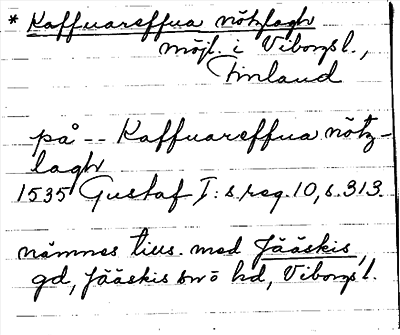 * Kaffuareffua nötzlagh
möjl. i Viborgs l.,
Finland
på -- Kaffuareffua nötz-
lagh
1535 Gustaf I:s reg. 10, s. 313.
nämnes tills. med Jääskis,
gd, Jääskis snö hd, Viborgs l.